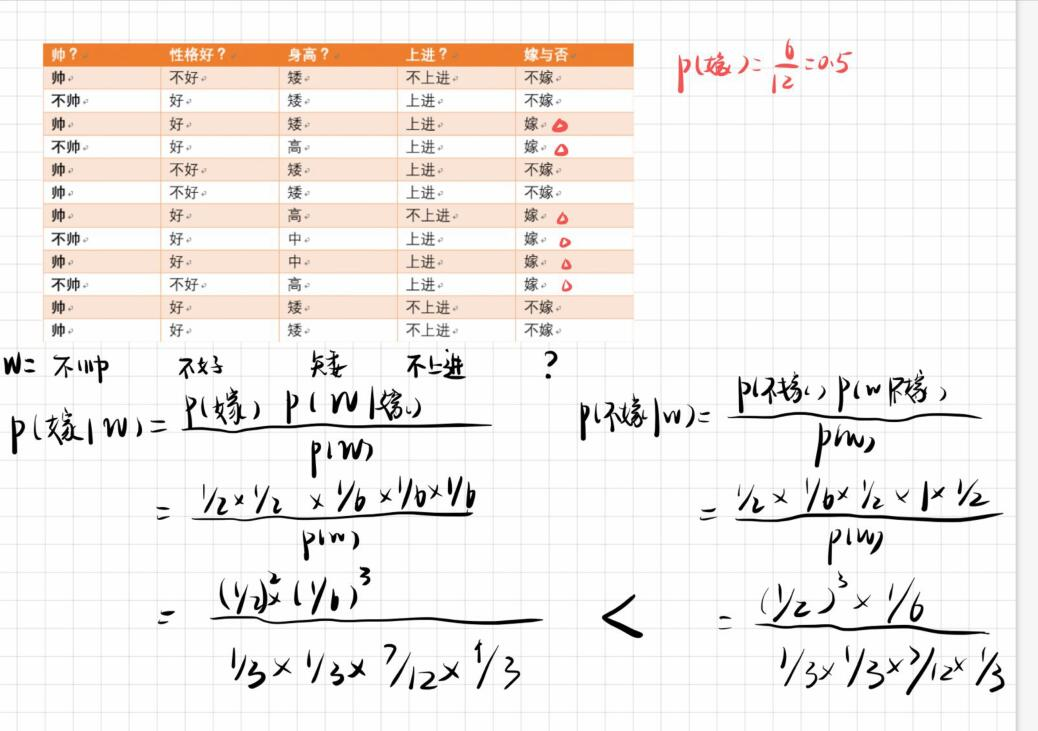 帅? 性格好? 身高? 上进? 嫁与否
帅 不好 矮 不上进 不嫁
不帅 好 矮 上进 不嫁
帅 好 矮 上进 嫁
不帅 好 高 上进 嫁
帅 不好 矮 上进 不嫁
帅 不好 矮 上进 不嫁
帅 好 高 不上进 嫁
不帅 好 中 上进 嫁
帅 好 中 上进 嫁
不帅 不好 高 上进 嫁
帅 好 矮 不上进 不嫁
帅 好 矮 不上进 不嫁
p(嫁)= 6/12 =0.5
W= 不帅 不好 矮 不上进 ?
p(嫁|W)= p(嫁) p(W|嫁) / p(W)
= 1/2 × 1/2 × 1/6 × 1/6 × 1/6 / p(W)
= (1/2)² × (1/6)³ / 1/3 × 1/3 × 7/12 × 1/3
<
p(不嫁|W)= p(不嫁) p(W|不嫁) / p(W)
= 1/2 × 1/6 × 1/2 × 1 × 1/2 / p(W)
= (1/2)³ × 1/6 / 1/3 × 1/3 × 7/12 × 1/3